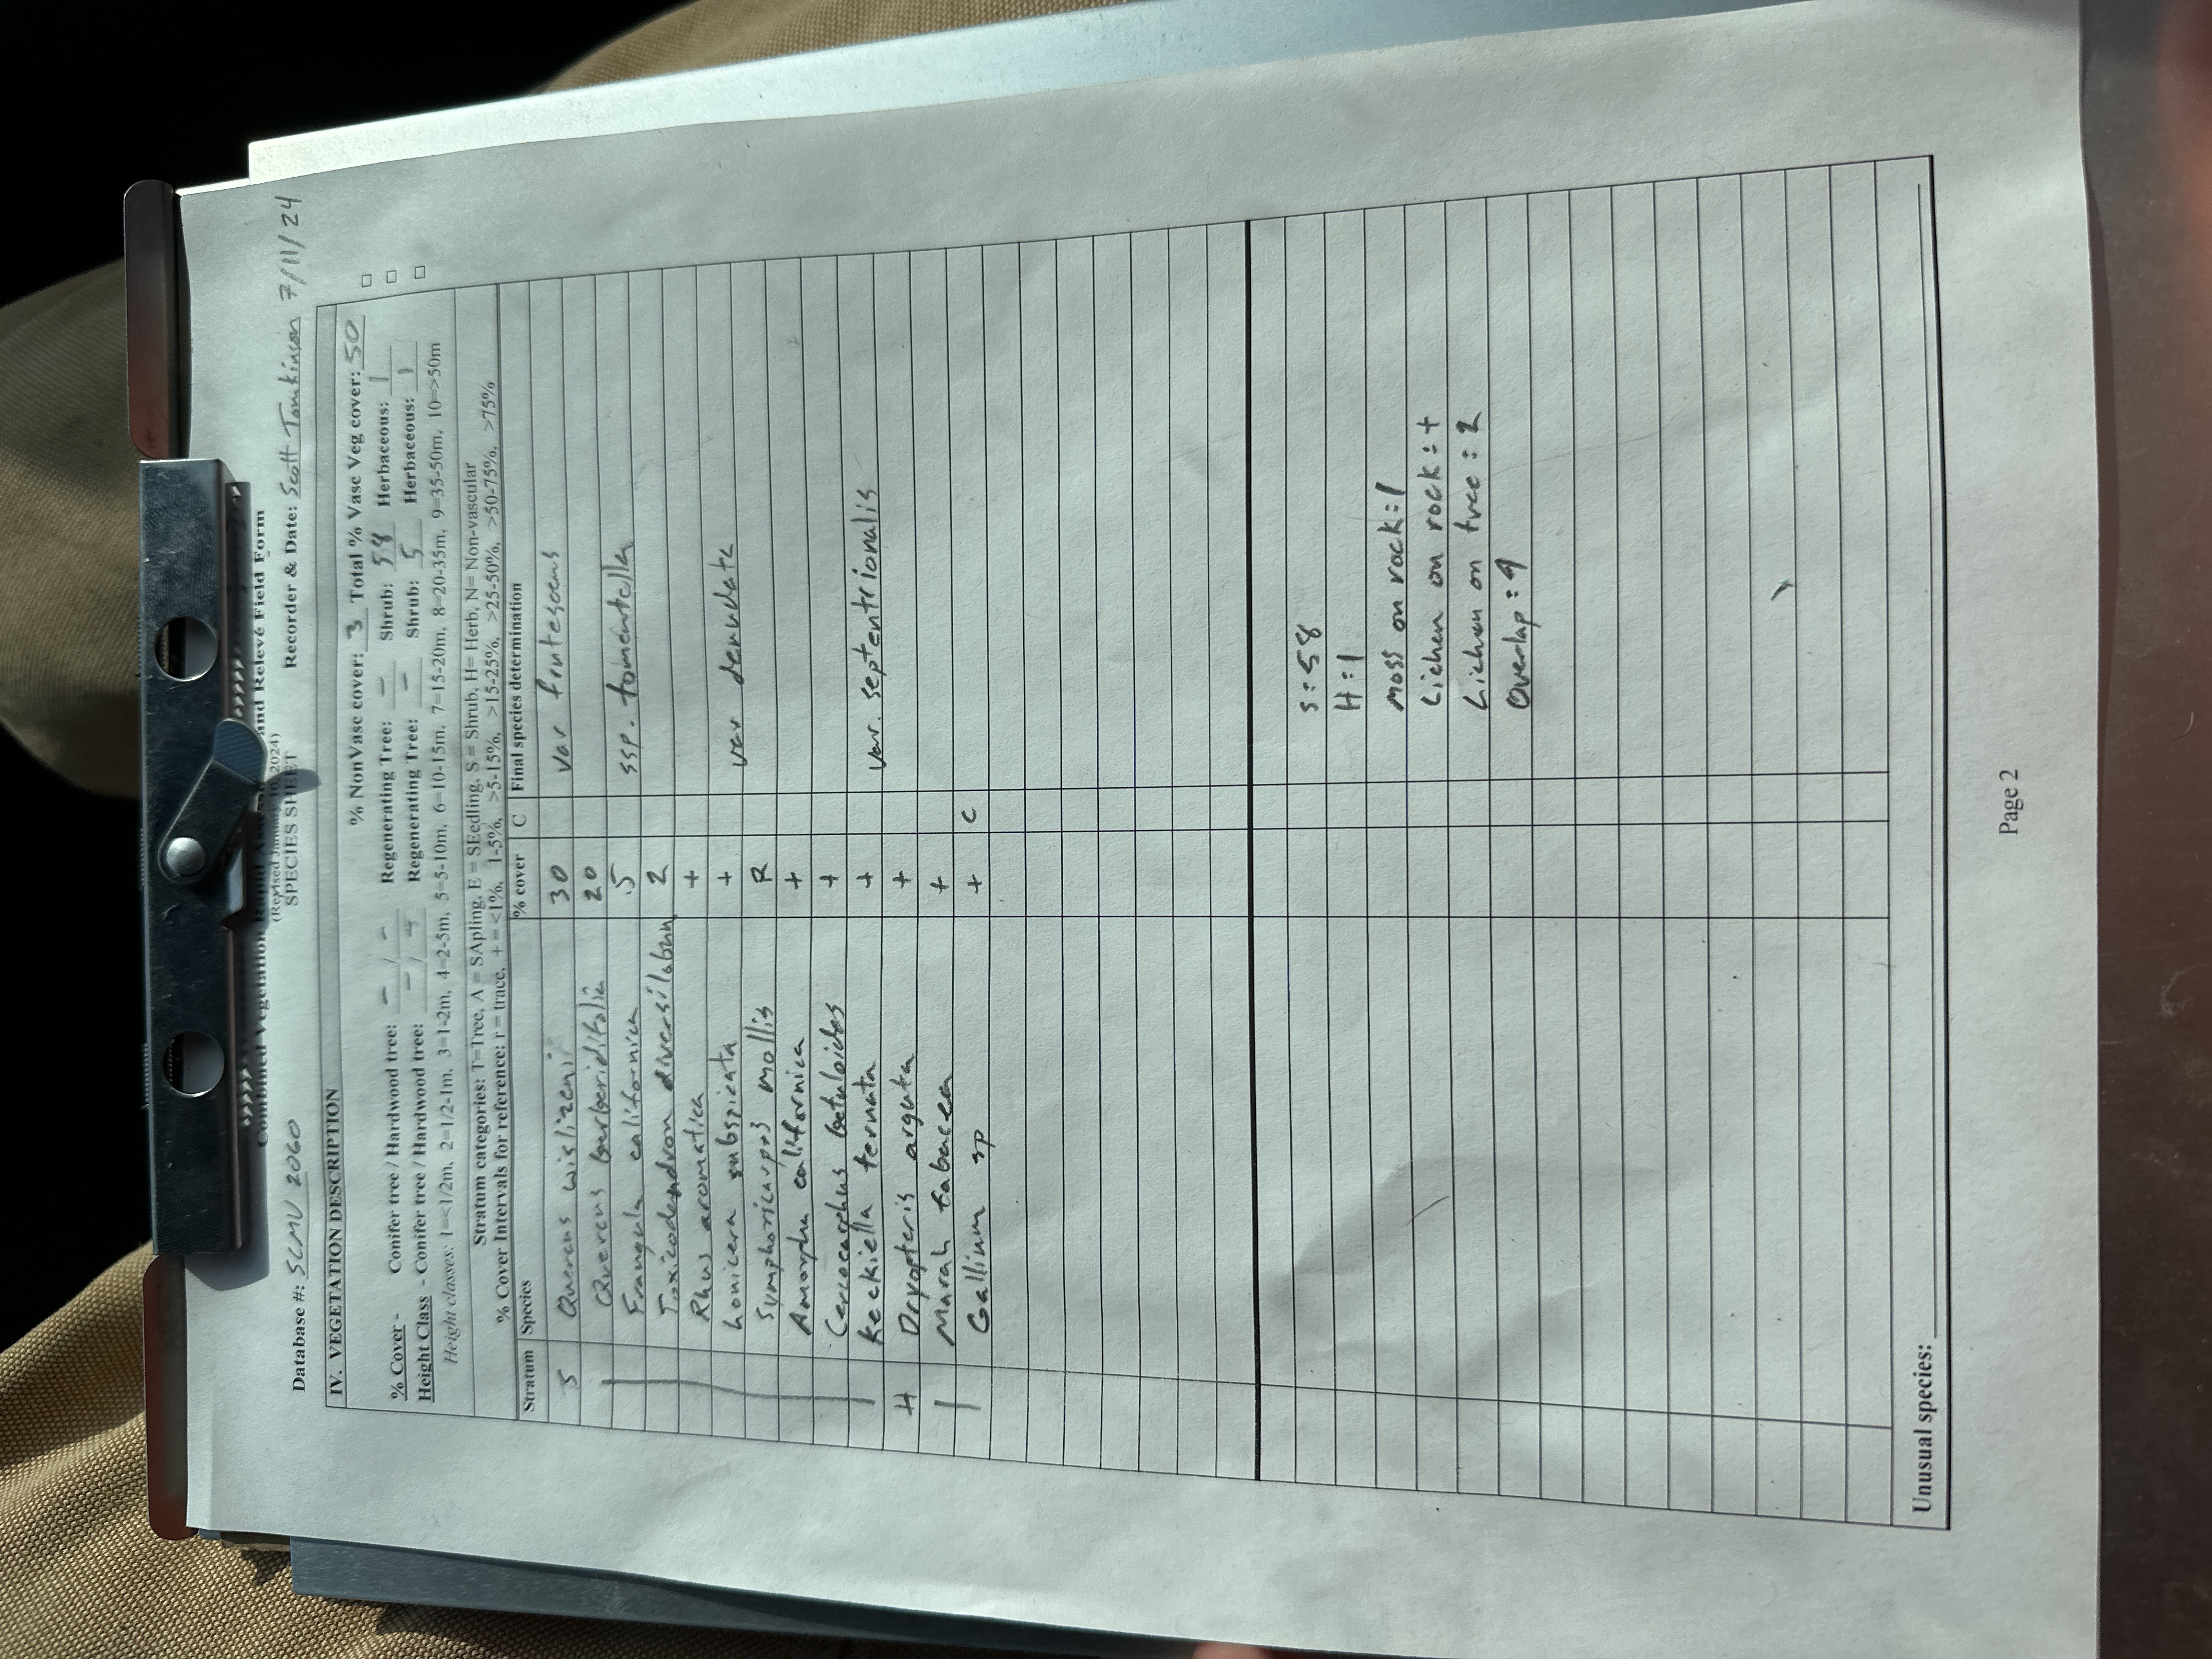 Combined Vegetation and Relevé Field Form
(Revised 2024)
SPECIES SHEET
Database #: SCMU 2060 Recorder & Date: Scott Tomkinson 7/11/24
IV. VEGETATION DESCRIPTION
% NonVasc cover: 3 Total % Vasc Veg cover: 50 □
% Cover - Conifer tree / Hardwood tree: - / - Regenerating Tree: - Shrub: 58 Herbaceous: 1 □
Height Class - Conifer tree / Hardwood tree: - / - Regenerating Tree: - Shrub: 5 Herbaceous: 1 □
Height classes: 1=<1/2m, 2=1/2-1m, 3=1-2m, 4=2-5m, 5=5-10m, 6=10-15m, 7=15-20m, 8=20-35m, 9=35-50m, 10=>50m
Stratum categories: T=Tree, A = SApling, E = SEedling, S = Shrub, H= Herb, N= Non-vascular
% Cover Intervals for reference: r = trace, + = <1%, 1-5%, >5-15%, >15-25%, >25-50%, >50-75%, >75%
Stratum Species % cover C Final species determination
S Quercus wislizeni 30 var frutescens
Quercus berberidifolia 20
Frangula californica .5 ssp. tomentella
Toxicodendron diversilabum 2
Rhus aromatica +
Lonicera subspicata + var denudata
Symphoricarpos mollis R
Amorpha californica +
Cercocarphus betuloides +
Keckiella ternata + var. septentrionalis
H Dryopteris arguta +
Marah fabacea +
Gallium sp + C
S: 58
H: 1
Moss on rock: 1
Lichen on rock: +
Lichen on tree: 2
Overlap: 9
Unusual species:
Page 2